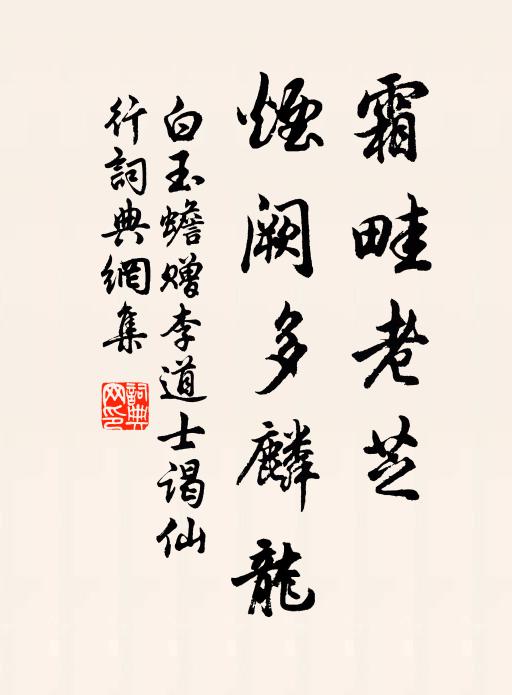 霜畦老芝
煙阙多麟龍
白玉蟾赠李道士谒仙
行詞典網集
詞典網印